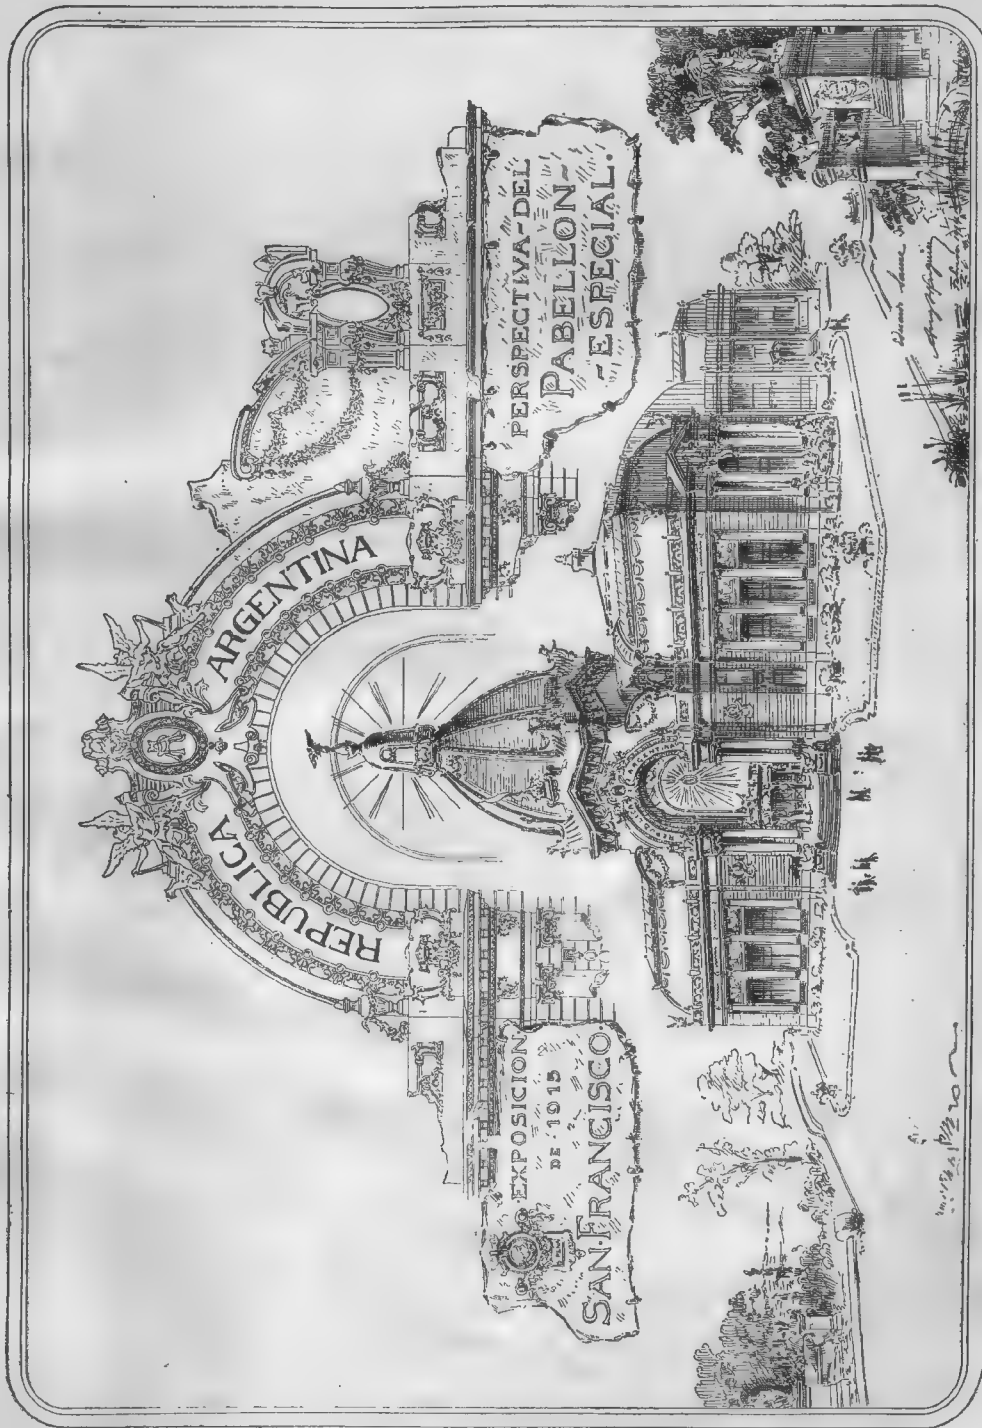 REPUBLICA ARGENTINA
·EXPOSICION·
DE·1915
SAN·FRANCISCO·
PERSPECTIVA-DEL
PABELLON-
-ESPECIAL.